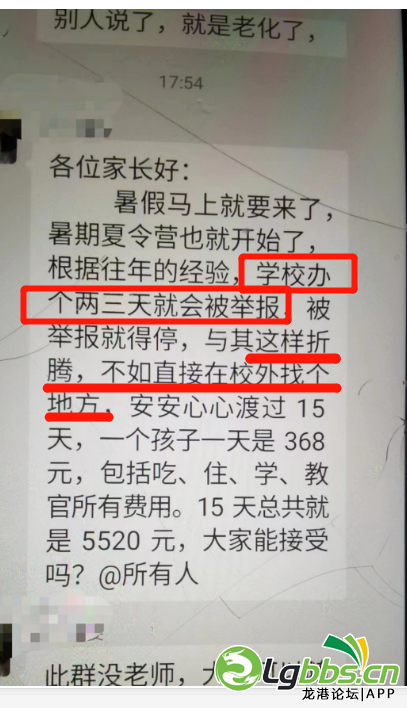 别人说了，就是老化了，
17:54
各位家长好：
暑假马上就要来了，
暑期夏令营也就开始了，
根据往年的经验，学校办
个两三天就会被举报，被
举报就得停，与其这样折
腾，不如直接在校外找个
地方，安安心心渡过 15
天，一个孩子一天是 368
元，包括吃、住、学、教
官所有费用。15 天总共就
是 5520 元，大家能接受
吗？@所有人
此群没老师，大
Lgbbs.cn
龙港论坛|APP